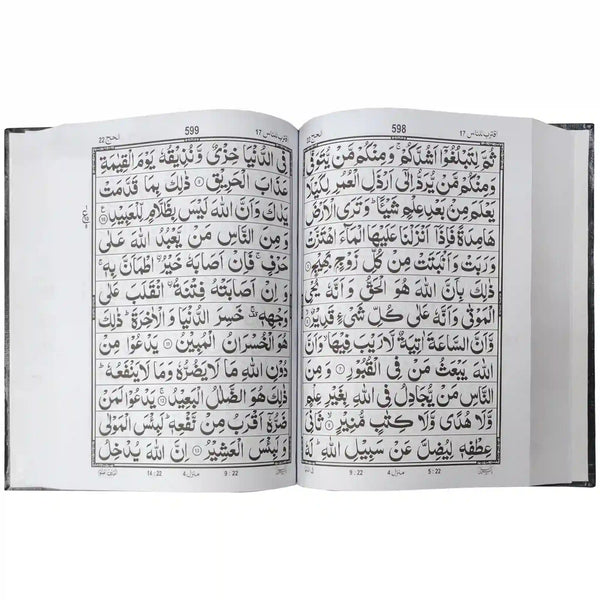 اقترب للناس 17
598
الحج 22
ثُمَّ لِتَبْلُغُوْۤا اَشُدَّكُمْ ۚ وَمِنْكُمْ مَّنْ يُّتَوَفّٰى
وَمِنْكُمْ مَّنْ يُّرَدُّ اِلٰۤى اَرْذَلِ الْعُمُرِ لِكَيْلَا
يَعْلَمَ مِنْۢ بَعْدِ عِلْمٍ شَيْـًٔا ؕ وَتَرَى الْاَرْضَ
هَامِدَةً فَاِذَاۤ اَنْزَلْنَا عَلَيْهَا الْمَآءَ اهْتَزَّتْ
وَرَبَتْ وَاَنْۢبَتَتْ مِنْ كُلِّ زَوْجٍۭ بَهِيْجٍ ۵
ذٰلِكَ بِاَنَّ اللّٰهَ هُوَ الْحَقُّ وَاَنَّهٗ يُحْيِ
الْمَوْتٰى وَاَنَّهٗ عَلٰى كُلِّ شَيْءٍ قَدِيْرٌ ۶
وَّاَنَّ السَّاعَةَ اٰتِيَةٌ لَّا رَيْبَ فِيْهَا ۙ وَاَنَّ
اللّٰهَ يَبْعَثُ مَنْ فِى الْقُبُوْرِ ۷ وَمِنَ
النَّاسِ مَنْ يُّجَادِلُ فِى اللّٰهِ بِغَيْرِ عِلْمٍ
وَّلَا هُدًى وَّلَا كِتٰبٍ مُّنِيْرٍ ۸ ثَانِيَ
عِطْفِهٖ لِيُضِلَّ عَنْ سَبِيْلِ اللّٰهِ ؕ لَهٗ
5 : 22
منزل 4
9 : 22
599
الحج 22
اقترب للناس 17
فِى الدُّنْيَا خِزْيٌ وَّنُذِيْقُهٗ يَوْمَ الْقِيٰمَةِ
عَذَابَ الْحَرِيْقِ ۹ ذٰلِكَ بِمَا قَدَّمَتْ
يَدٰكَ وَاَنَّ اللّٰهَ لَيْسَ بِظَلَّامٍ لِّلْعَبِيْدِ ۱۰
وَمِنَ النَّاسِ مَنْ يَّعْبُدُ اللّٰهَ عَلٰى
حَرْفٍ ۚ فَاِنْ اَصَابَهٗ خَيْرُ ۨ اطْمَاَنَّ بِهٖ ۚ
وَاِنْ اَصَابَتْهُ فِتْنَةُ ۨ انْقَلَبَ عَلٰى
وَجْهِهٖ ۚ خَسِرَ الدُّنْيَا وَالْاٰخِرَةَ ؕ ذٰلِكَ
هُوَ الْخُسْرَانُ الْمُبِيْنُ ۱۱ يَدْعُوْا مِنْ
دُوْنِ اللّٰهِ مَا لَا يَضُرُّهٗ وَمَا لَا يَنْفَعُهٗ ؕ
ذٰلِكَ هُوَ الضَّلٰلُ الْبَعِيْدُ ۱۲ يَدْعُوْا لَمَنْ
ضَرُّهٗۤ اَقْرَبُ مِنْ نَّفْعِهٖ ؕ لَبِئْسَ الْمَوْلٰى
وَلَبِئْسَ الْعَشِيْرُ ۱۳ اِنَّ اللّٰهَ يُدْخِلُ
9 : 22
منزل 4
14 : 22